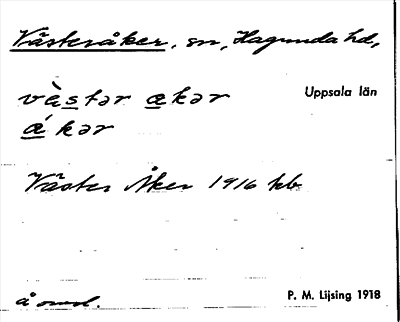 Västeråker, sn, Hagunda hd,
Uppsala län
vàstər åkər
ákər
Väster Åker 1916 kb
å omd.
P. M. Lijsing 1918